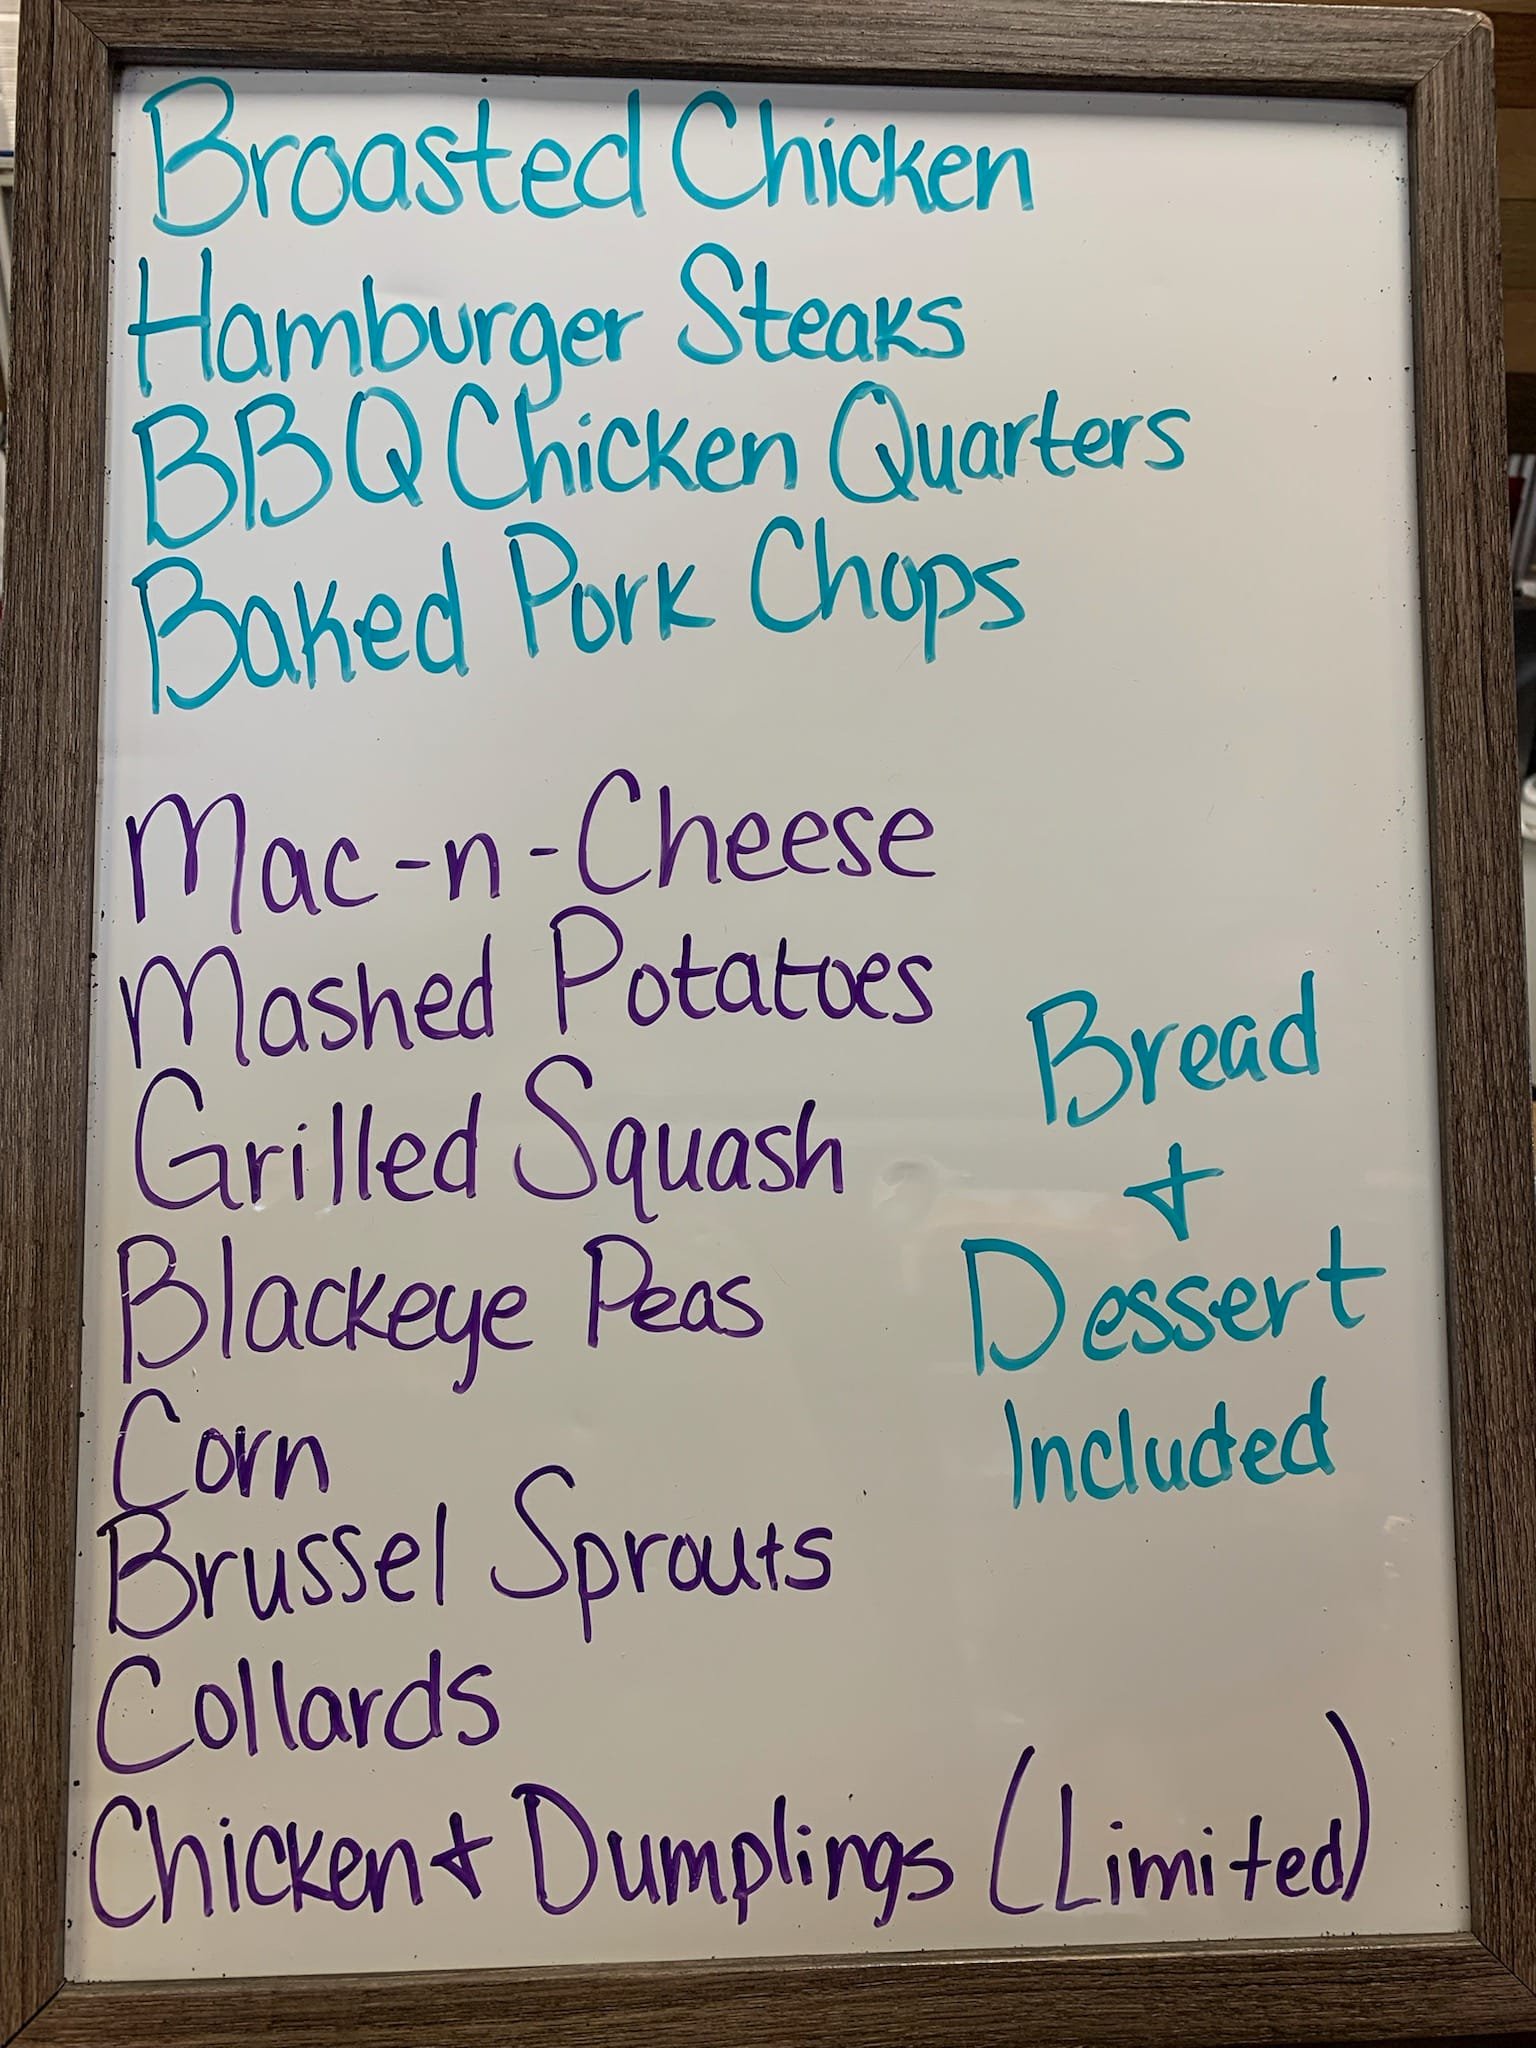 Broasted Chicken
Hamburger Steaks
BBQ Chicken Quarters
Baked Pork Chops
Mac-n-Cheese
Mashed Potatoes
Grilled Squash
Blackeye Peas
Corn
Brussel Sprouts
Collards
Chicken + Dumplings (Limited)
Bread
+
Dessert
Included